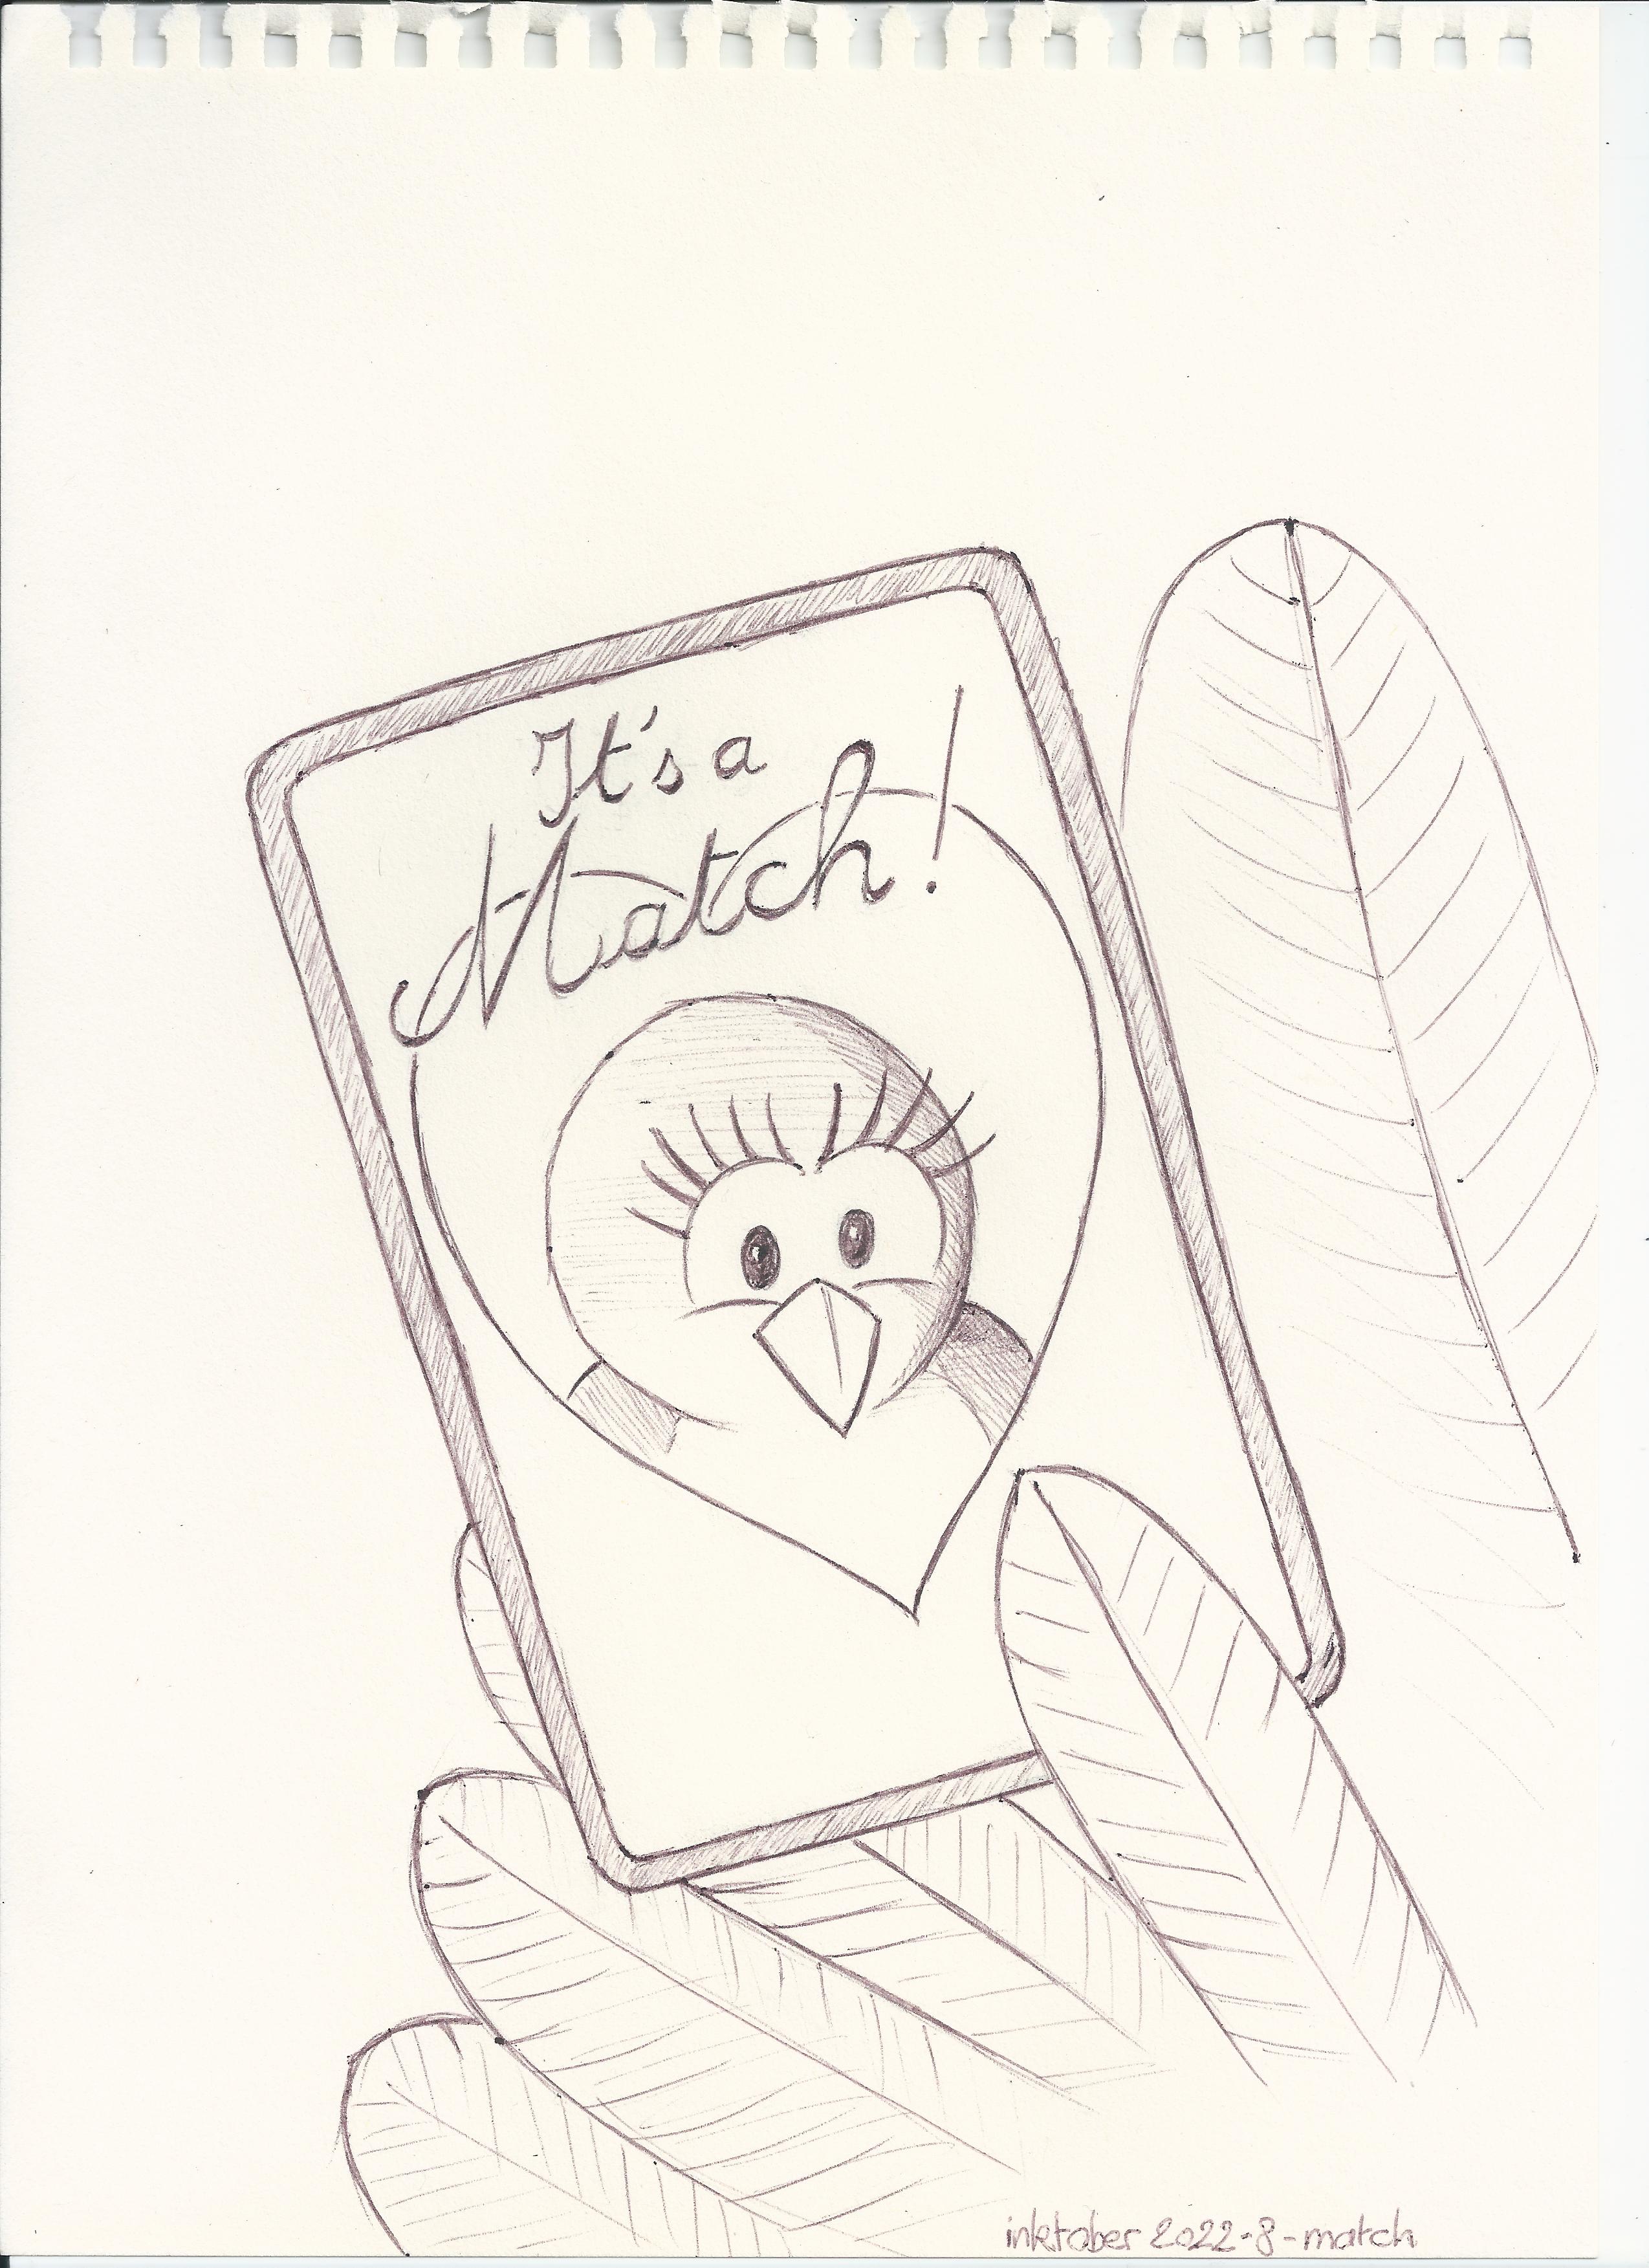 It's a
Match!
inktober 2022-8-match